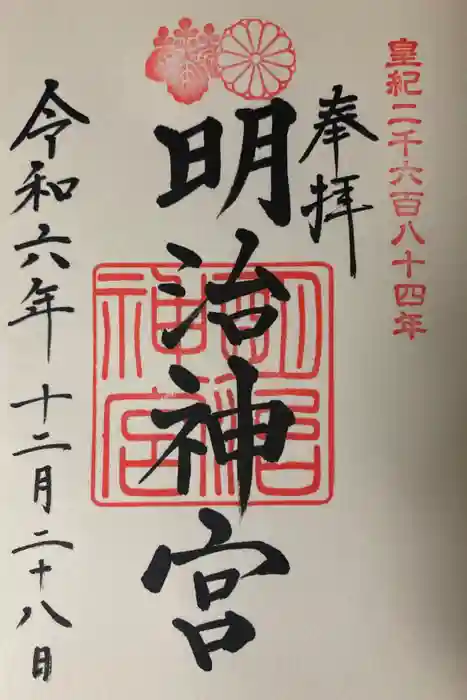 皇紀二千六百八十四年
奉拝
明治神宮
明治神宮
令和六年十二月二十八日